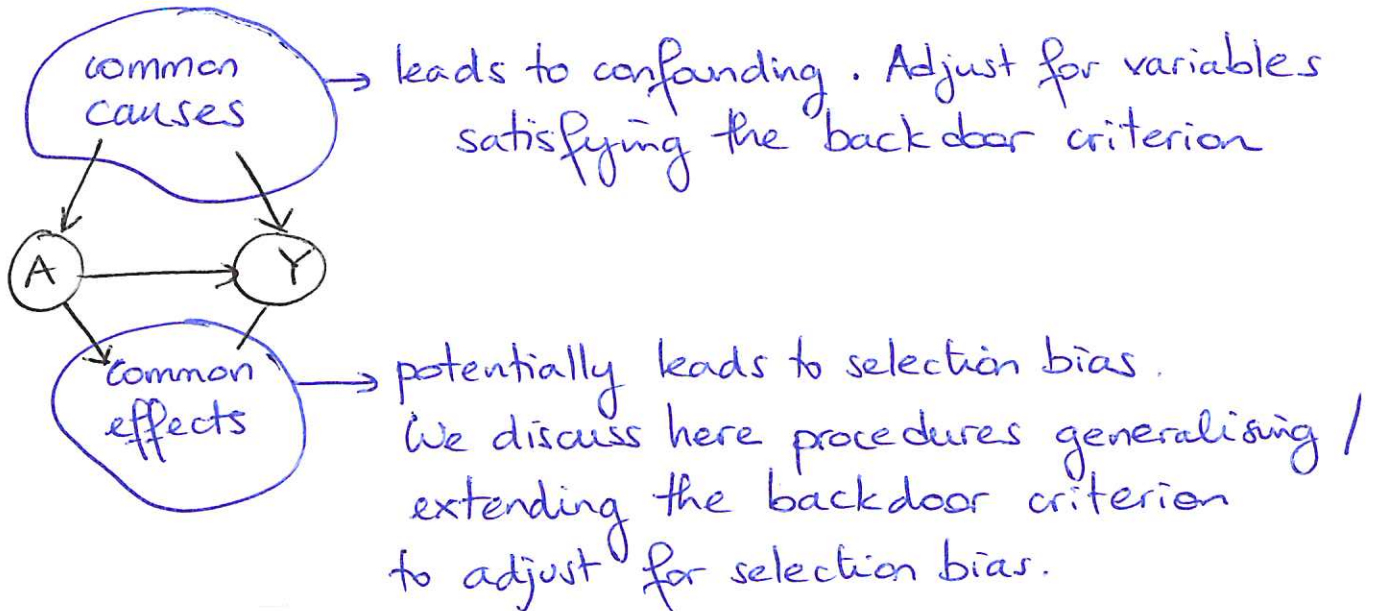 common
causes
leads to confounding. Adjust for variables
satisfying the backdoor criterion
A
Y
common
effects
potentially leads to selection bias.
We discuss here procedures generalising /
extending the backdoor criterion
to adjust for selection bias.